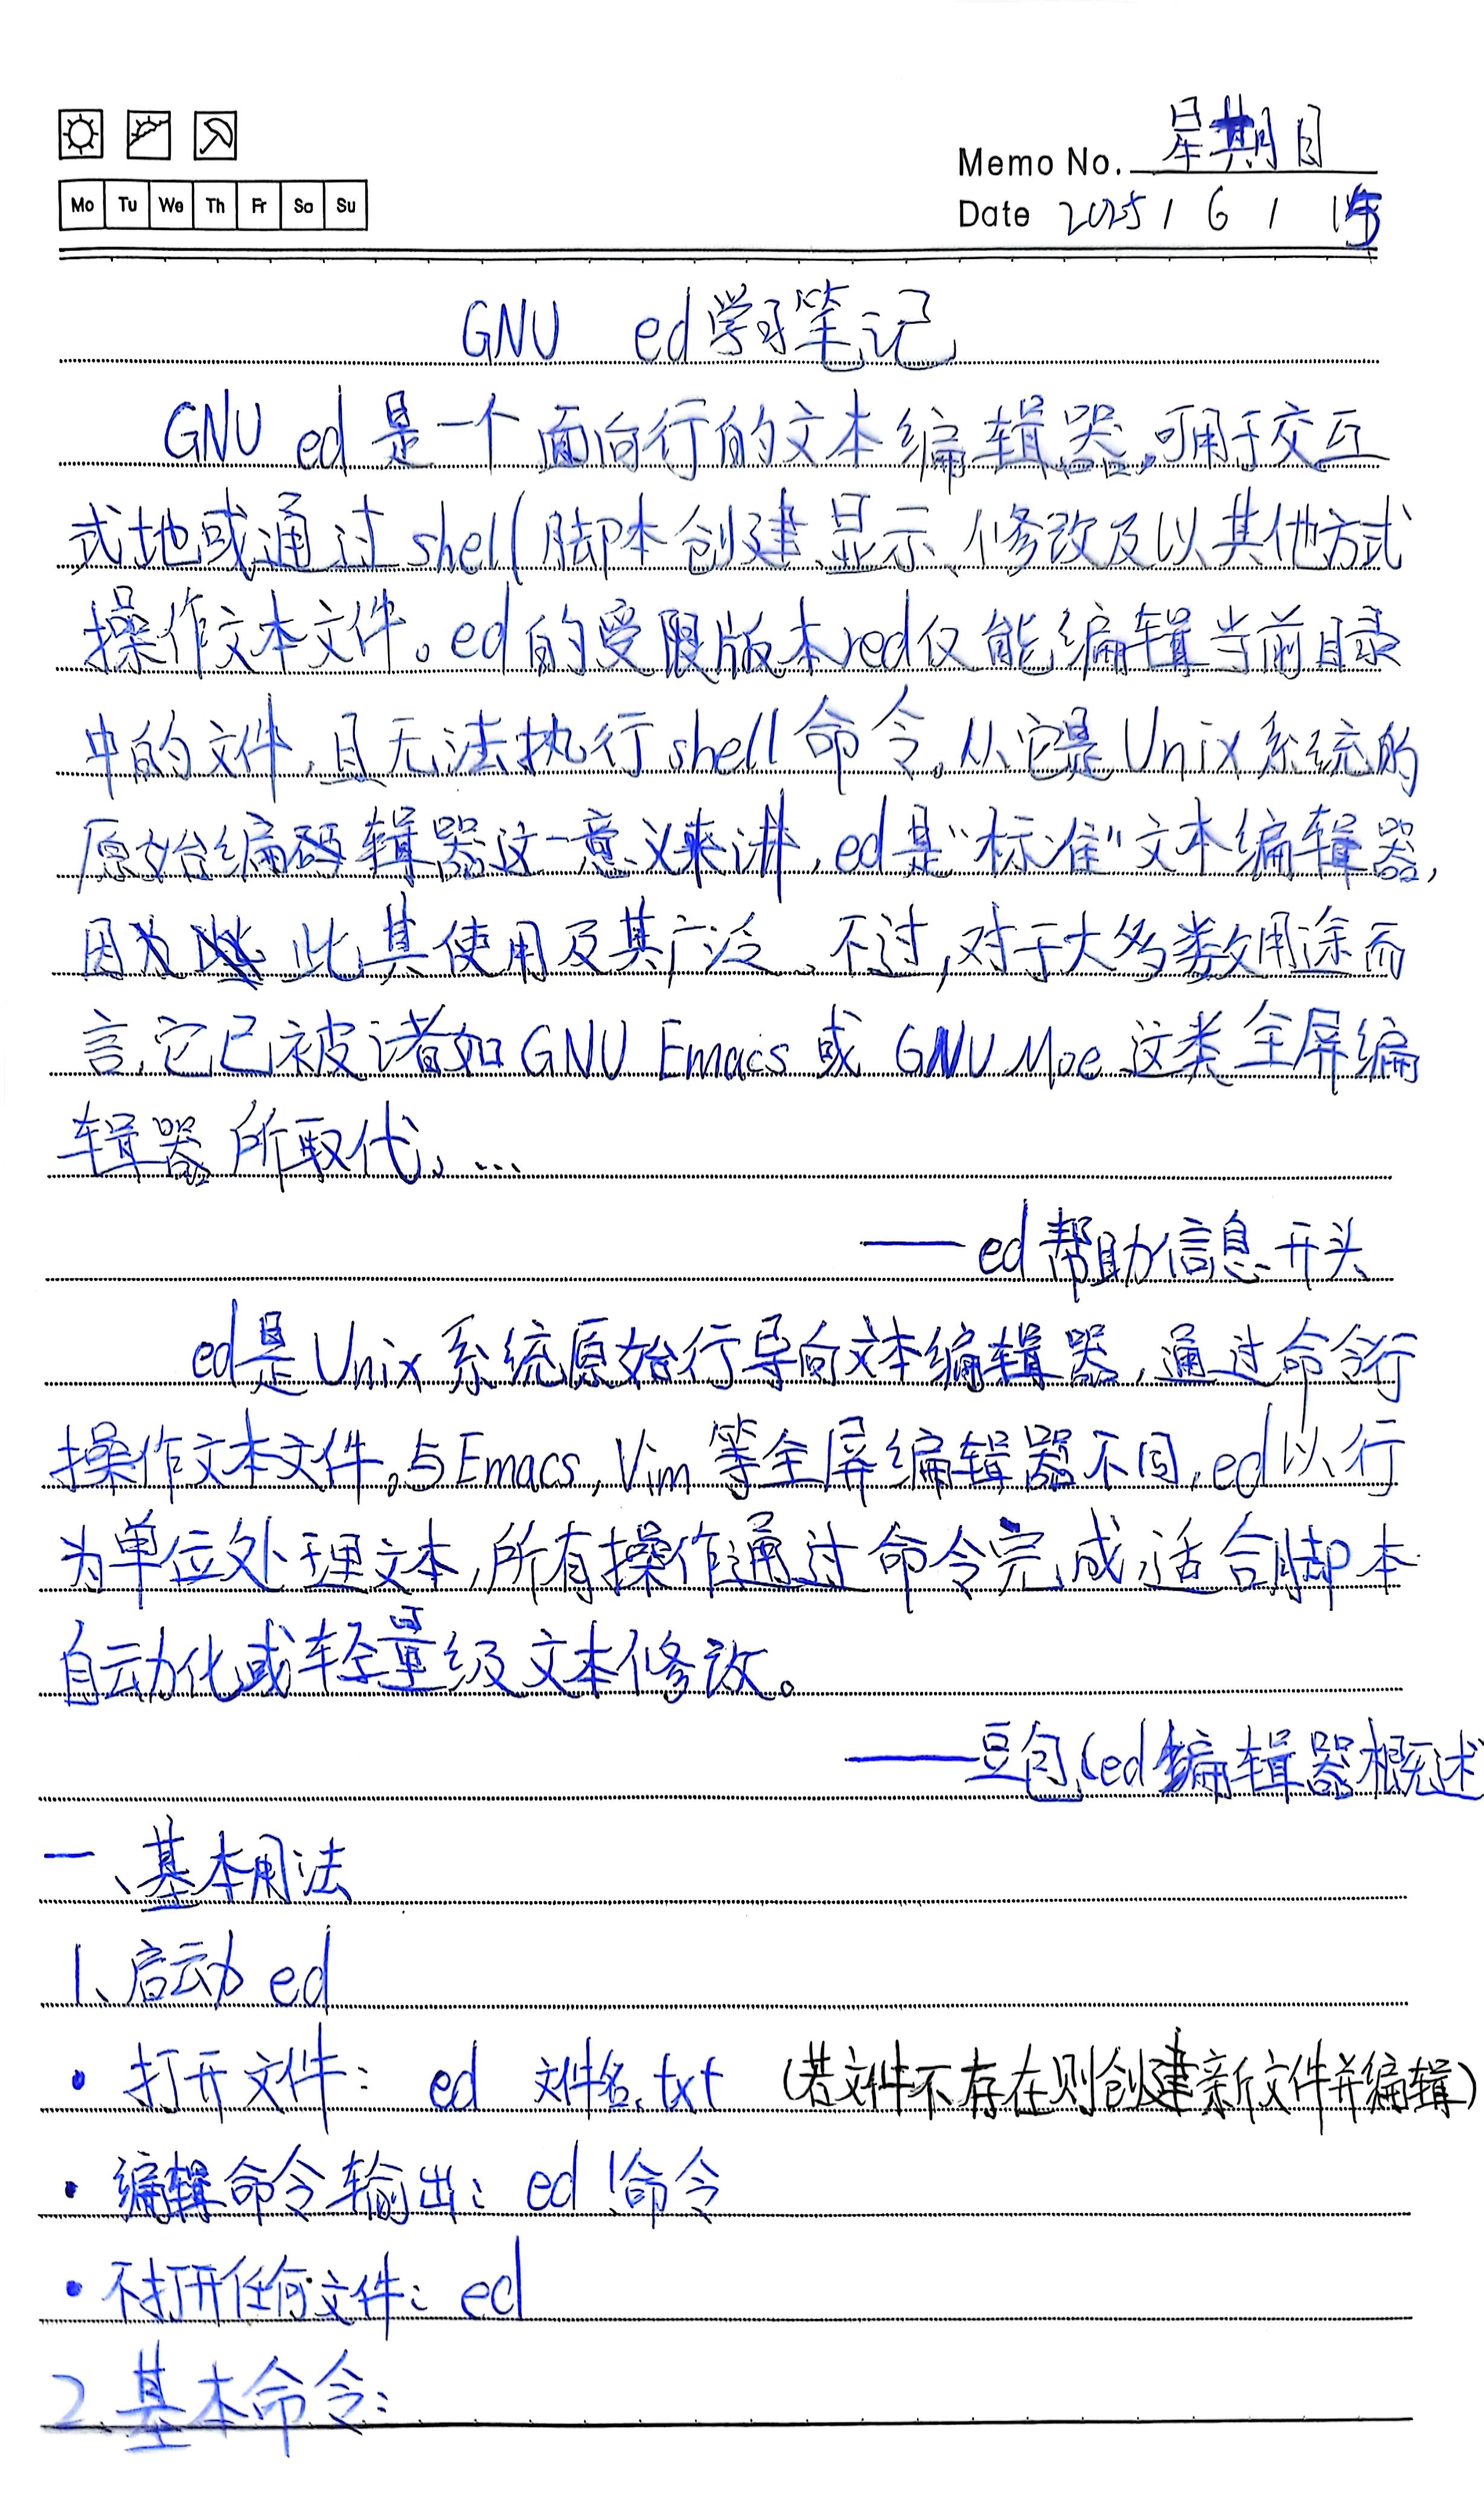 Memo No. 星期日
Mo Tu We Th Fr Sa Su
Date 2025 / 6 / 15
GNU ed学习笔记
GNU ed 是一个面向行的文本编辑器,可用于交互
式地或通过 shell 脚本创建、显示、修改及以其他方式
操作文本文件。ed的受限版本red仅能编辑当前目录
中的文件,且无法执行 shell 命令。从它是 Unix 系统的
原始编辑器这一意义来讲,ed是“标准”文本编辑器,
因此,其使用及其广泛。不过,对于大多数用途而
言,它已被诸如 GNU Emacs 或 GNU Moe 这类全屏编
辑器所取代。...
——ed帮助信息开头
ed是 Unix 系统原始行导向文本编辑器,通过命令行
操作文本文件。与Emacs,Vim 等全屏编辑器不同,ed以行
为单位处理文本,所有操作通过命令完成,适合脚本
自动化或轻量级文本修改。
——豆包(ed编辑器概述
一、基本用法
1、启动 ed
· 打开文件: ed 文件名.txt (若文件不存在则创建新文件并编辑)
· 编辑命令输出: ed !命令
· 不打开任何文件: ed
2.基本命令: